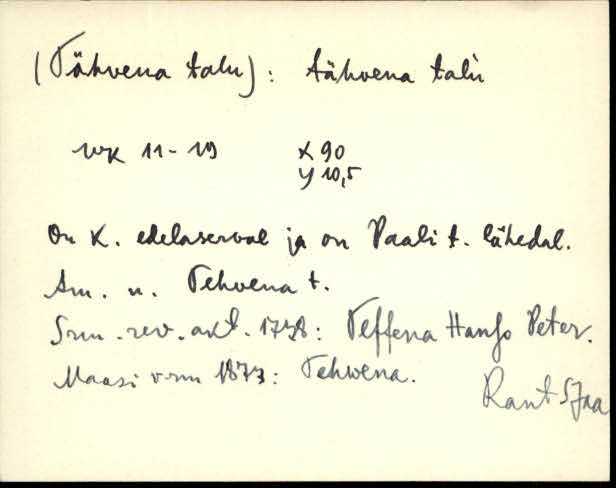 (Tähvena talu): tähvena talu
wk 11-19 x 90
y 10,5
On K. edelaserval ja on Paali t. lähedal.
Am. n. Tehvena t.
Srm. rev. akt. 1738: Teffena Hanso Peter.
Maasi vrn 1873: Tehwena.
Rant SJaa